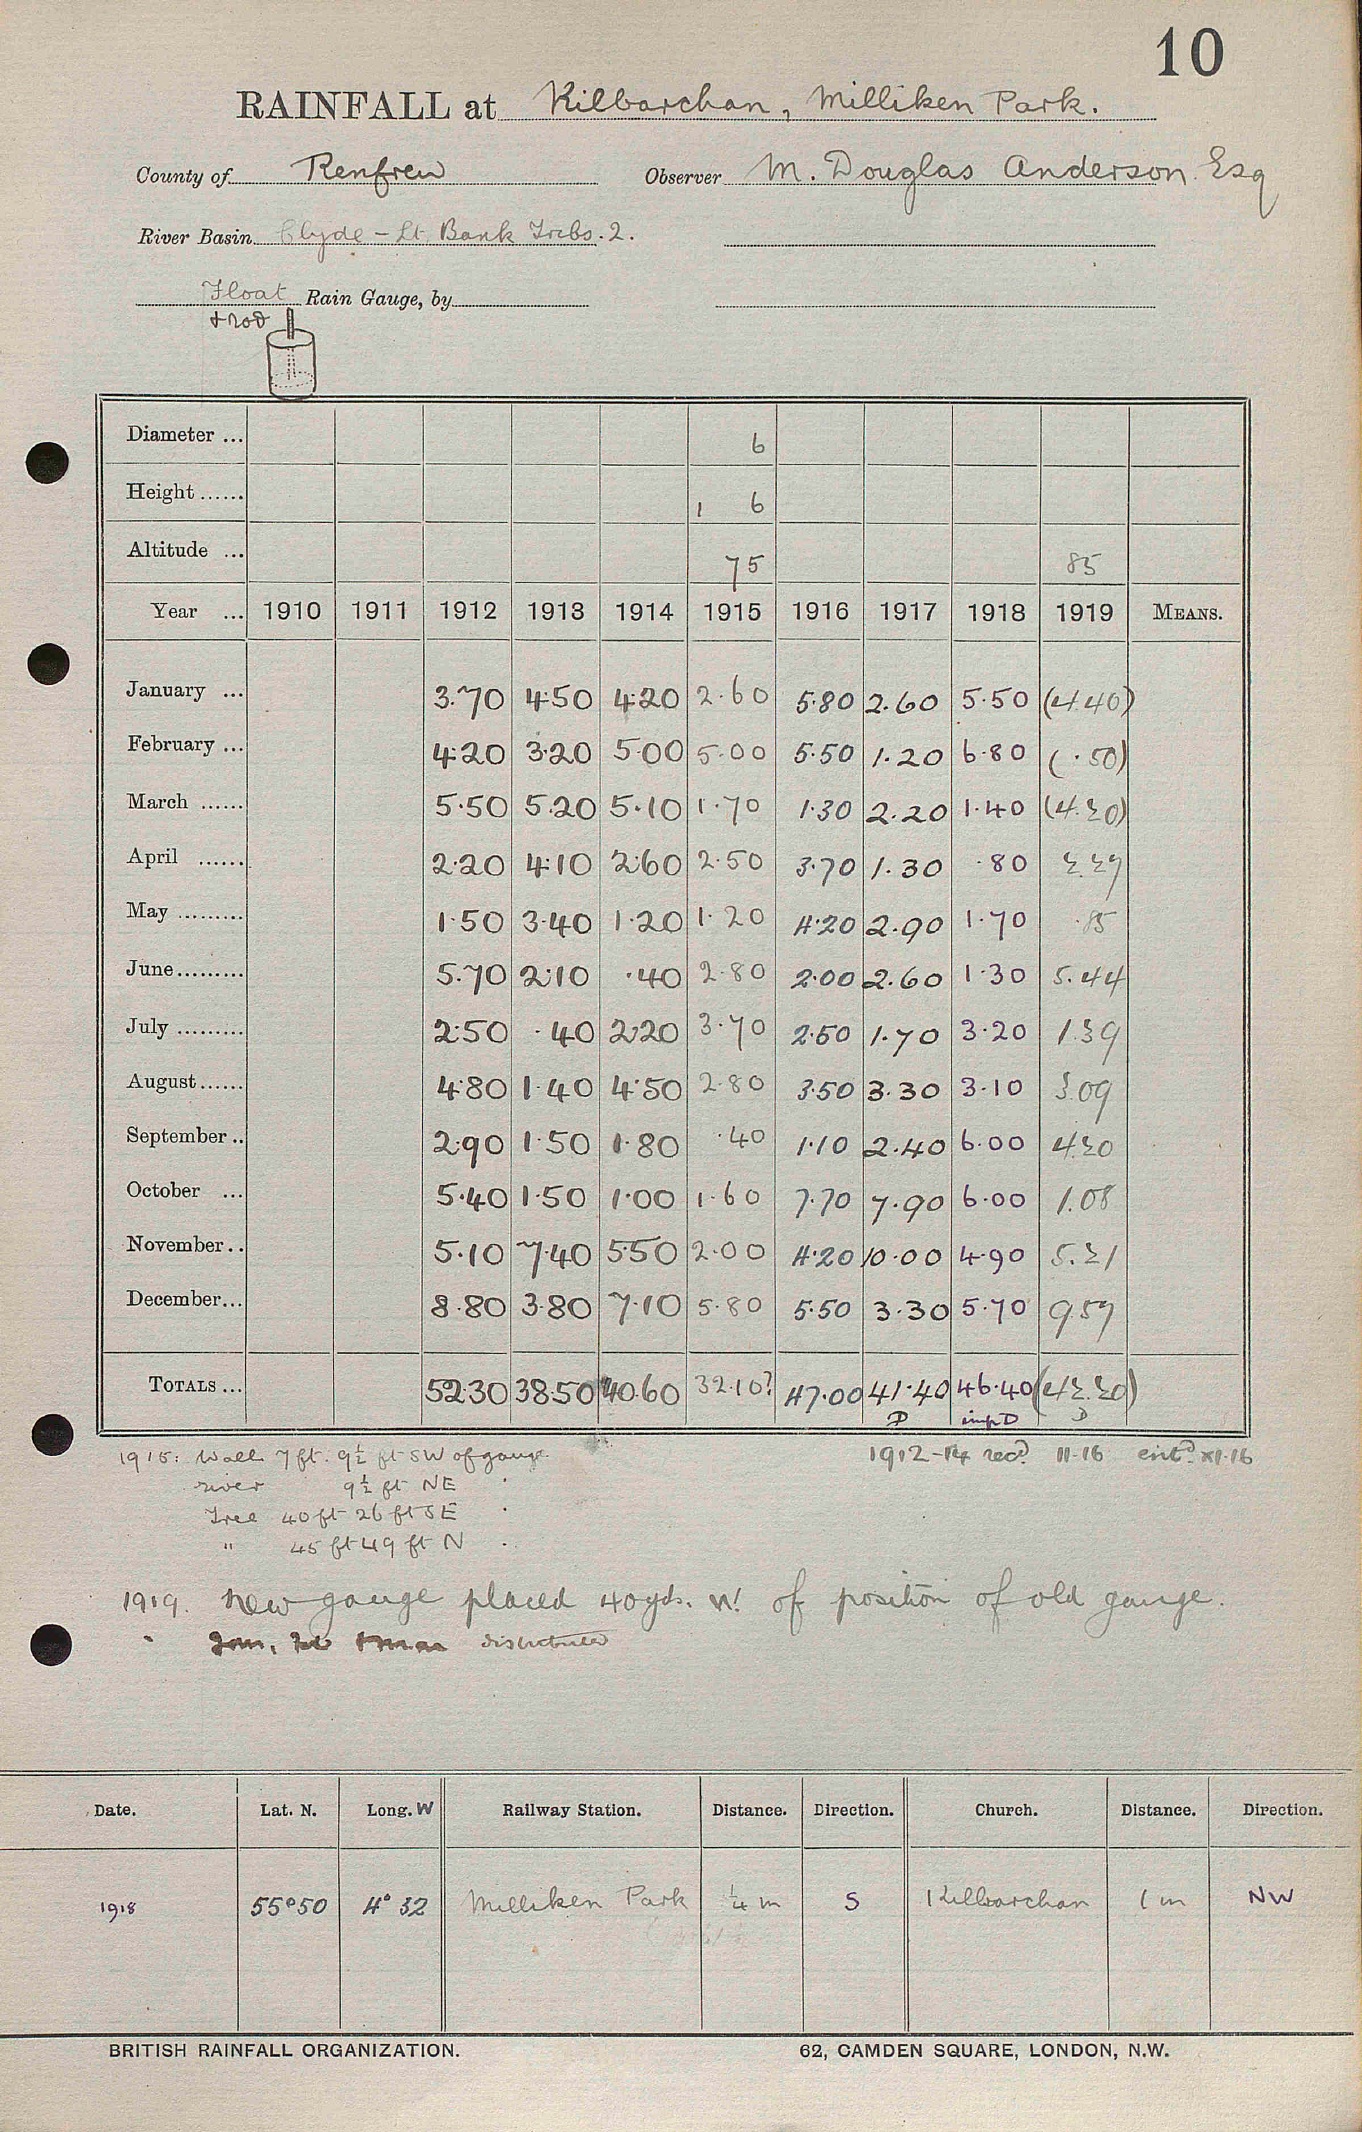 10
RAINFALL at Kilbarchan, Milliken Park.
County of Renfrew Observer M. Douglas Anderson Esq
River Basin Clyde - Lt Bank Tribs. 2.
Float Rain Gauge, by
& rod
Diameter ... 6
Height ...... 1 6
Altitude ... 75 85
Year ... 1910 1911 1912 1913 1914 1915 1916 1917 1918 1919 MEANS.
January ... 3.70 4.50 4.20 2.60 5.80 2.60 5.50 (4.40)
February ... 4.20 3.20 5.00 5.00 5.50 1.20 6.80 (.50)
March ...... 5.50 5.20 5.10 1.70 1.30 2.20 1.40 (4.20)
April ...... 2.20 4.10 2.60 2.50 3.70 1.30 .80 2.27
May ......... 1.50 3.40 1.20 1.20 4.20 2.90 1.70 .85
June ......... 5.70 2.10 .40 2.80 2.00 2.60 1.30 5.44
July ......... 2.50 .40 2.20 3.70 2.50 1.70 3.20 1.39
August ...... 4.80 1.40 4.50 2.80 3.50 3.30 3.10 3.09
September .. 2.90 1.50 1.80 .40 1.10 2.40 6.00 4.20
October ... 5.40 1.50 1.00 1.60 7.70 7.90 6.00 1.08
November .. 5.10 7.40 5.50 2.00 4.20 10.00 4.90 5.21
December ... 8.80 3.80 7.10 5.80 5.50 3.30 5.70 9.57
TOTALS ... 52.30 38.50 40.60 32.10? 47.00 41.40 46.40 (42.20)
D impD D
1915: Wall 7 ft. 9½ ft SW of gauge 1912-14 recd 11.16 entd XI.16
river 9½ ft NE
Tree 40 ft 26 ft SE
" 45 ft 49 ft N
1919. New gauge placed 40 yds. W. of position of old gauge.
" Jan, Feb & Mar distributed
Date. Lat. N. Long. W Railway Station. Distance. Direction. Church. Distance. Direction.
1918 55°50 4°32 Milliken Park ¼ m S Kilbarchan 1 m NW
BRITISH RAINFALL ORGANIZATION. 62, CAMDEN SQUARE, LONDON, N.W.